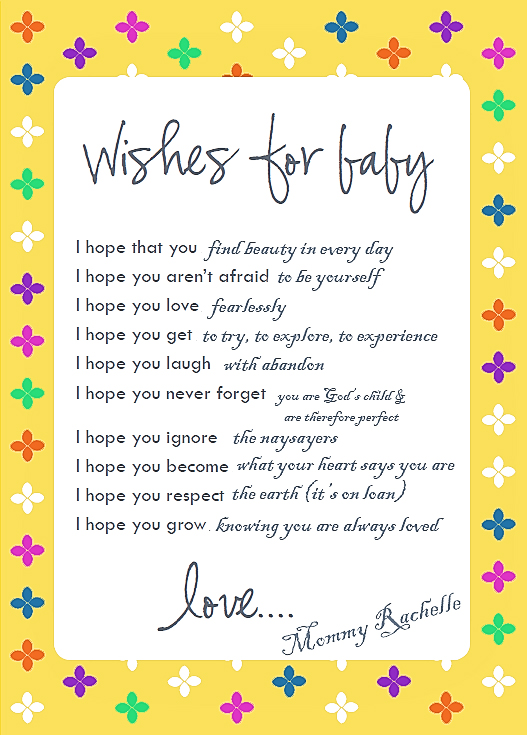 Wishes for baby
I hope that you find beauty in every day
I hope you aren't afraid to be yourself
I hope you love fearlessly
I hope you get to try, to explore, to experience
I hope you laugh with abandon
I hope you never forget you are God's child &
are therefore perfect
I hope you ignore the naysayers
I hope you become what your heart says you are
I hope you respect the earth (it's on loan)
I hope you grow. knowing you are always loved
love....
Mommy Rachelle